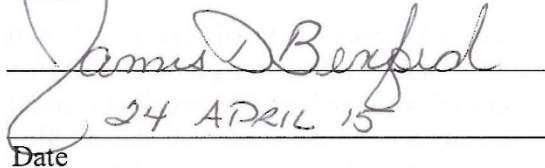 James D Benford
24 APRIL 15
Date